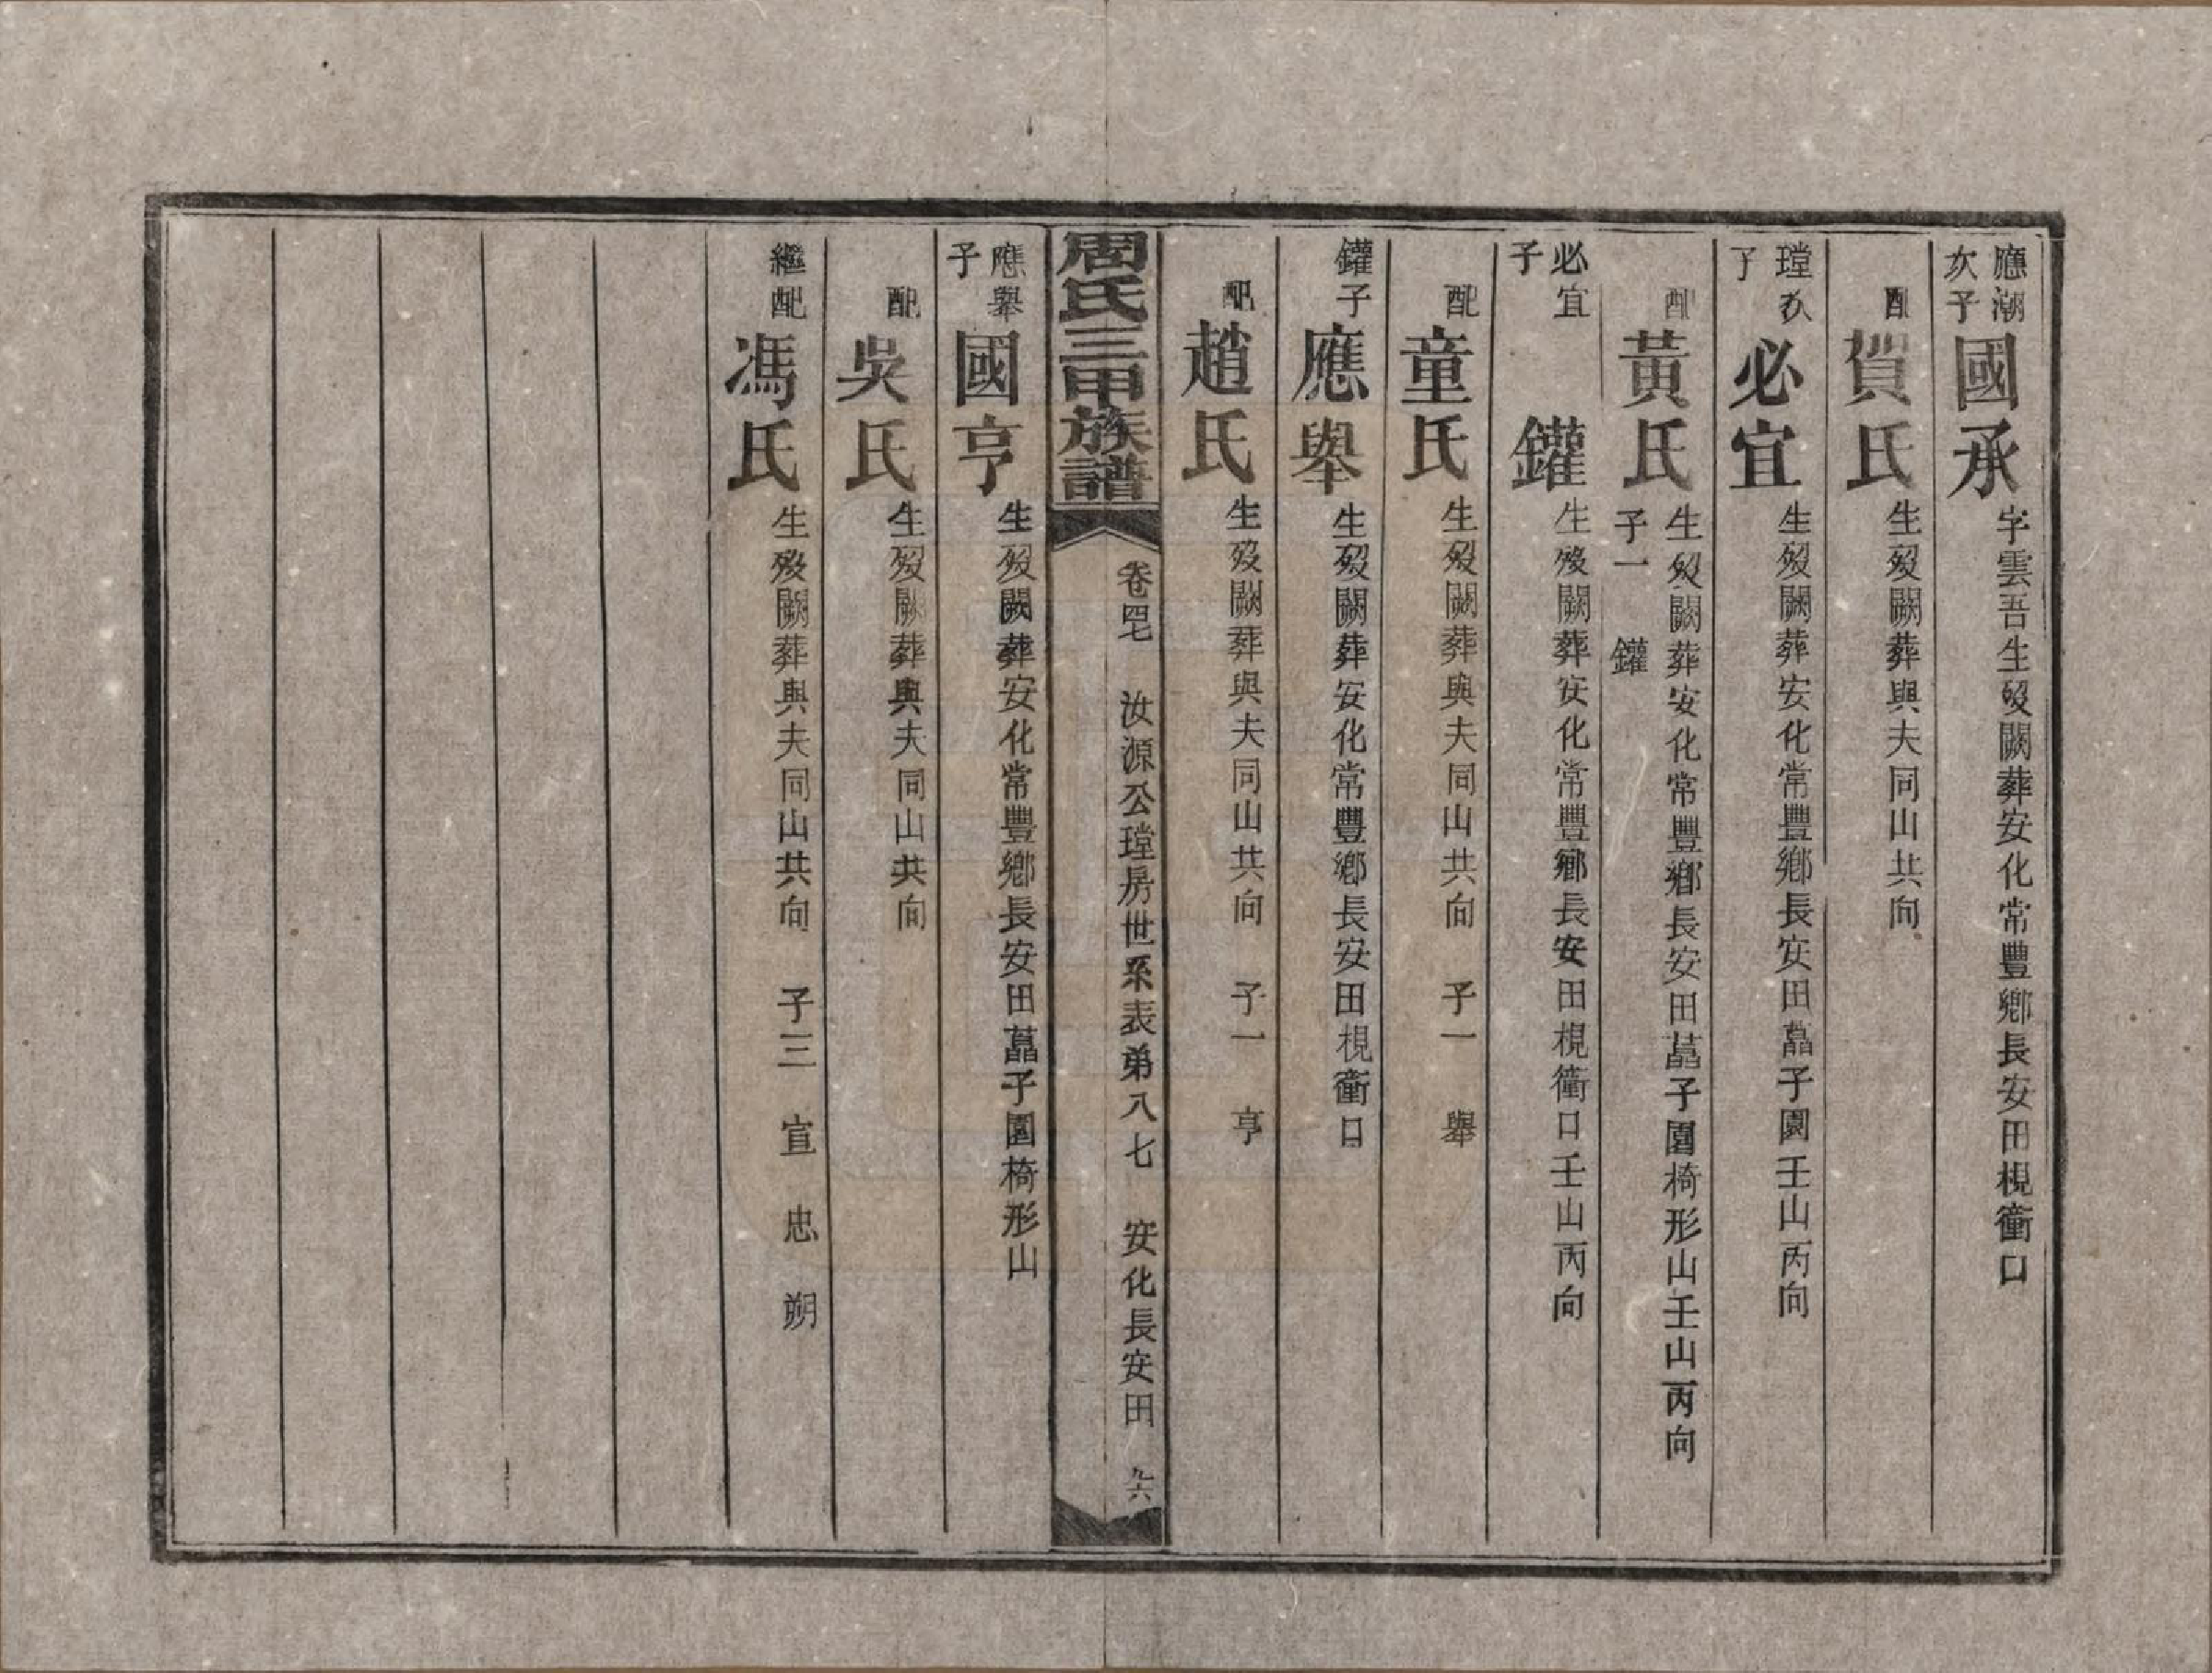 應潮次子 國承 字雲吾生歿闕葬安化常豐鄉長安田梘衝口
配 賀氏 生歿闕葬與夫同山共向
瑝次子 必宜 生歿闕葬安化常豐鄉長安田藠子園壬山丙向
配 黃氏 生歿闕葬安化常豐鄉長安田藠子園椅形山壬山丙向
子一 鑵
必宜子 鑵 生歿闕葬安化常豐鄉長安田梘衝口壬山丙向
配 童氏 生歿闕葬與夫同山共向 子一 舉
鑵子 應舉 生歿闕葬安化常豐鄉長安田梘衝口
配 趙氏 生歿闕葬與夫同山共向 子一 亨
周氏三甲族譜 卷四七 汝源公瑝房世系表弟八七 安化長安田 九六
應舉子 國亨 生歿闕葬安化常豐鄉長安田藠子園椅形山
配 吳氏 生歿闕葬與夫同山共向
繼配 馮氏 生歿闕葬與夫同山共向 子三 宣 忠 朔